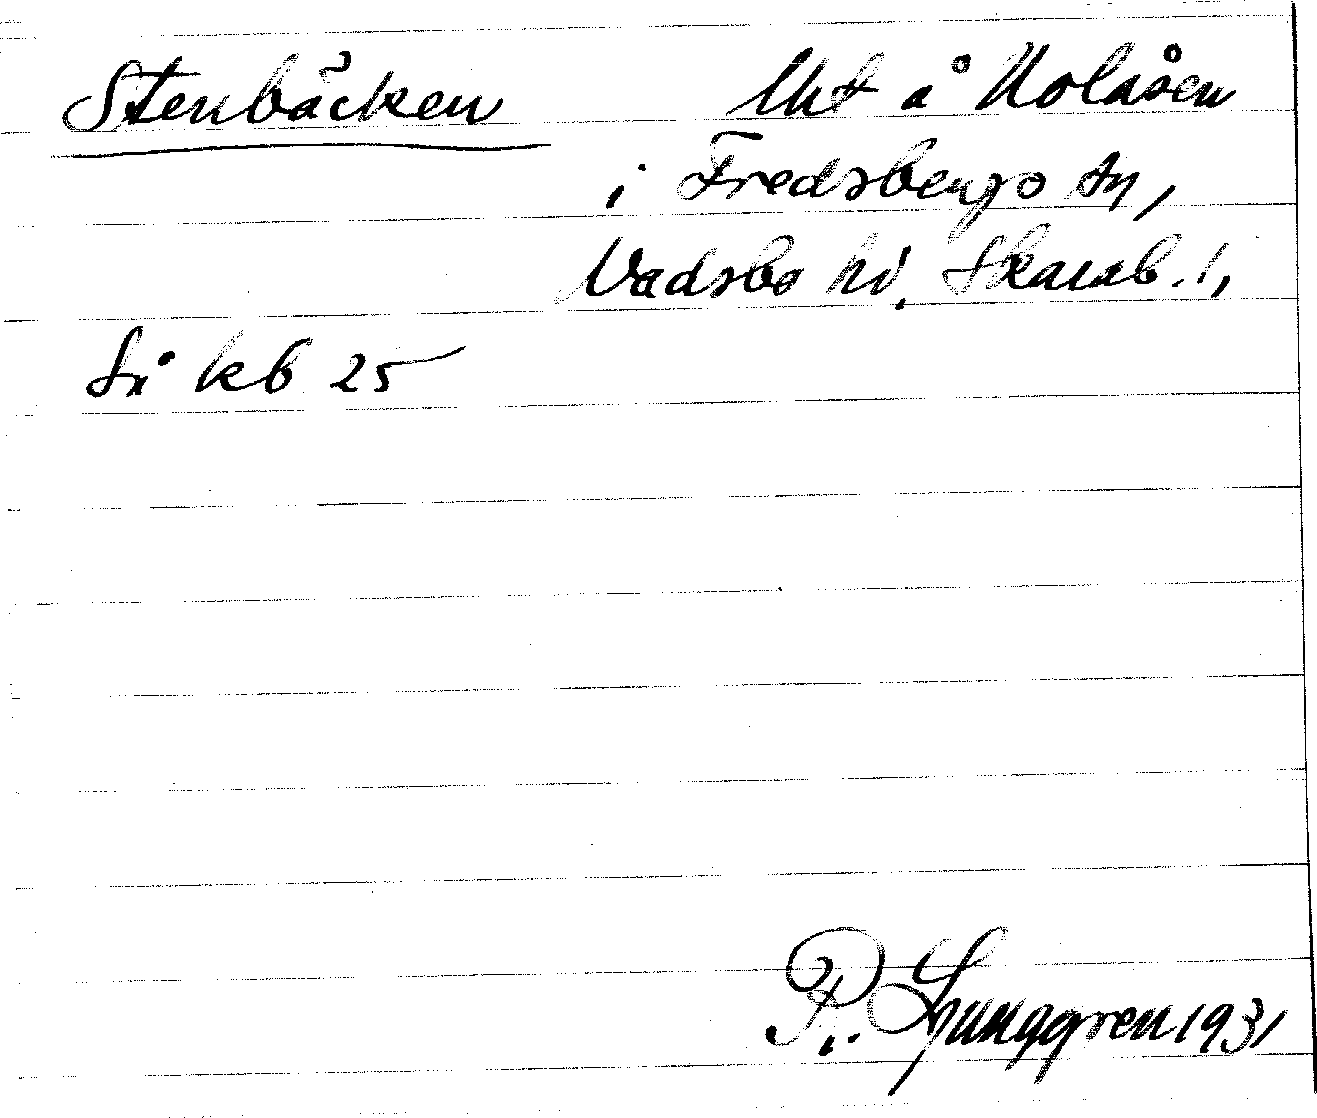 Stenbäcken Utt å Nolåsen
i Fredsbergs sn,
Vadsbo hd, Skarab. l,
kb 25
R. Ljunggren 1931